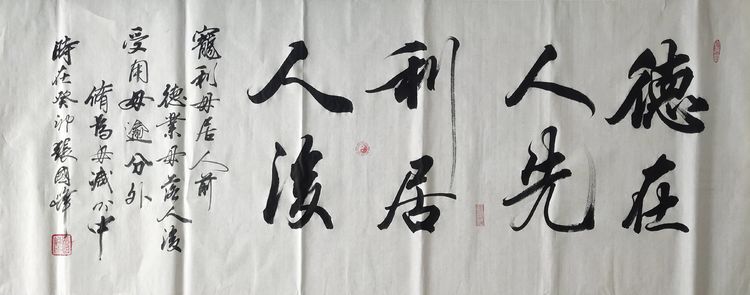 德在
人先
利居
人後
寵利毋居人前
德業毋落人後
受用毋逾分外
脩為毋減分中
時在癸卯張國峰